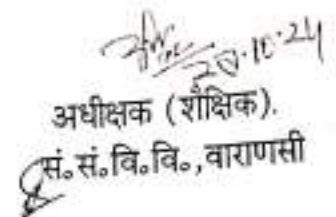 20.10.24
अधीक्षक (शैक्षिक).
सं.सं.वि.वि.,वाराणसी